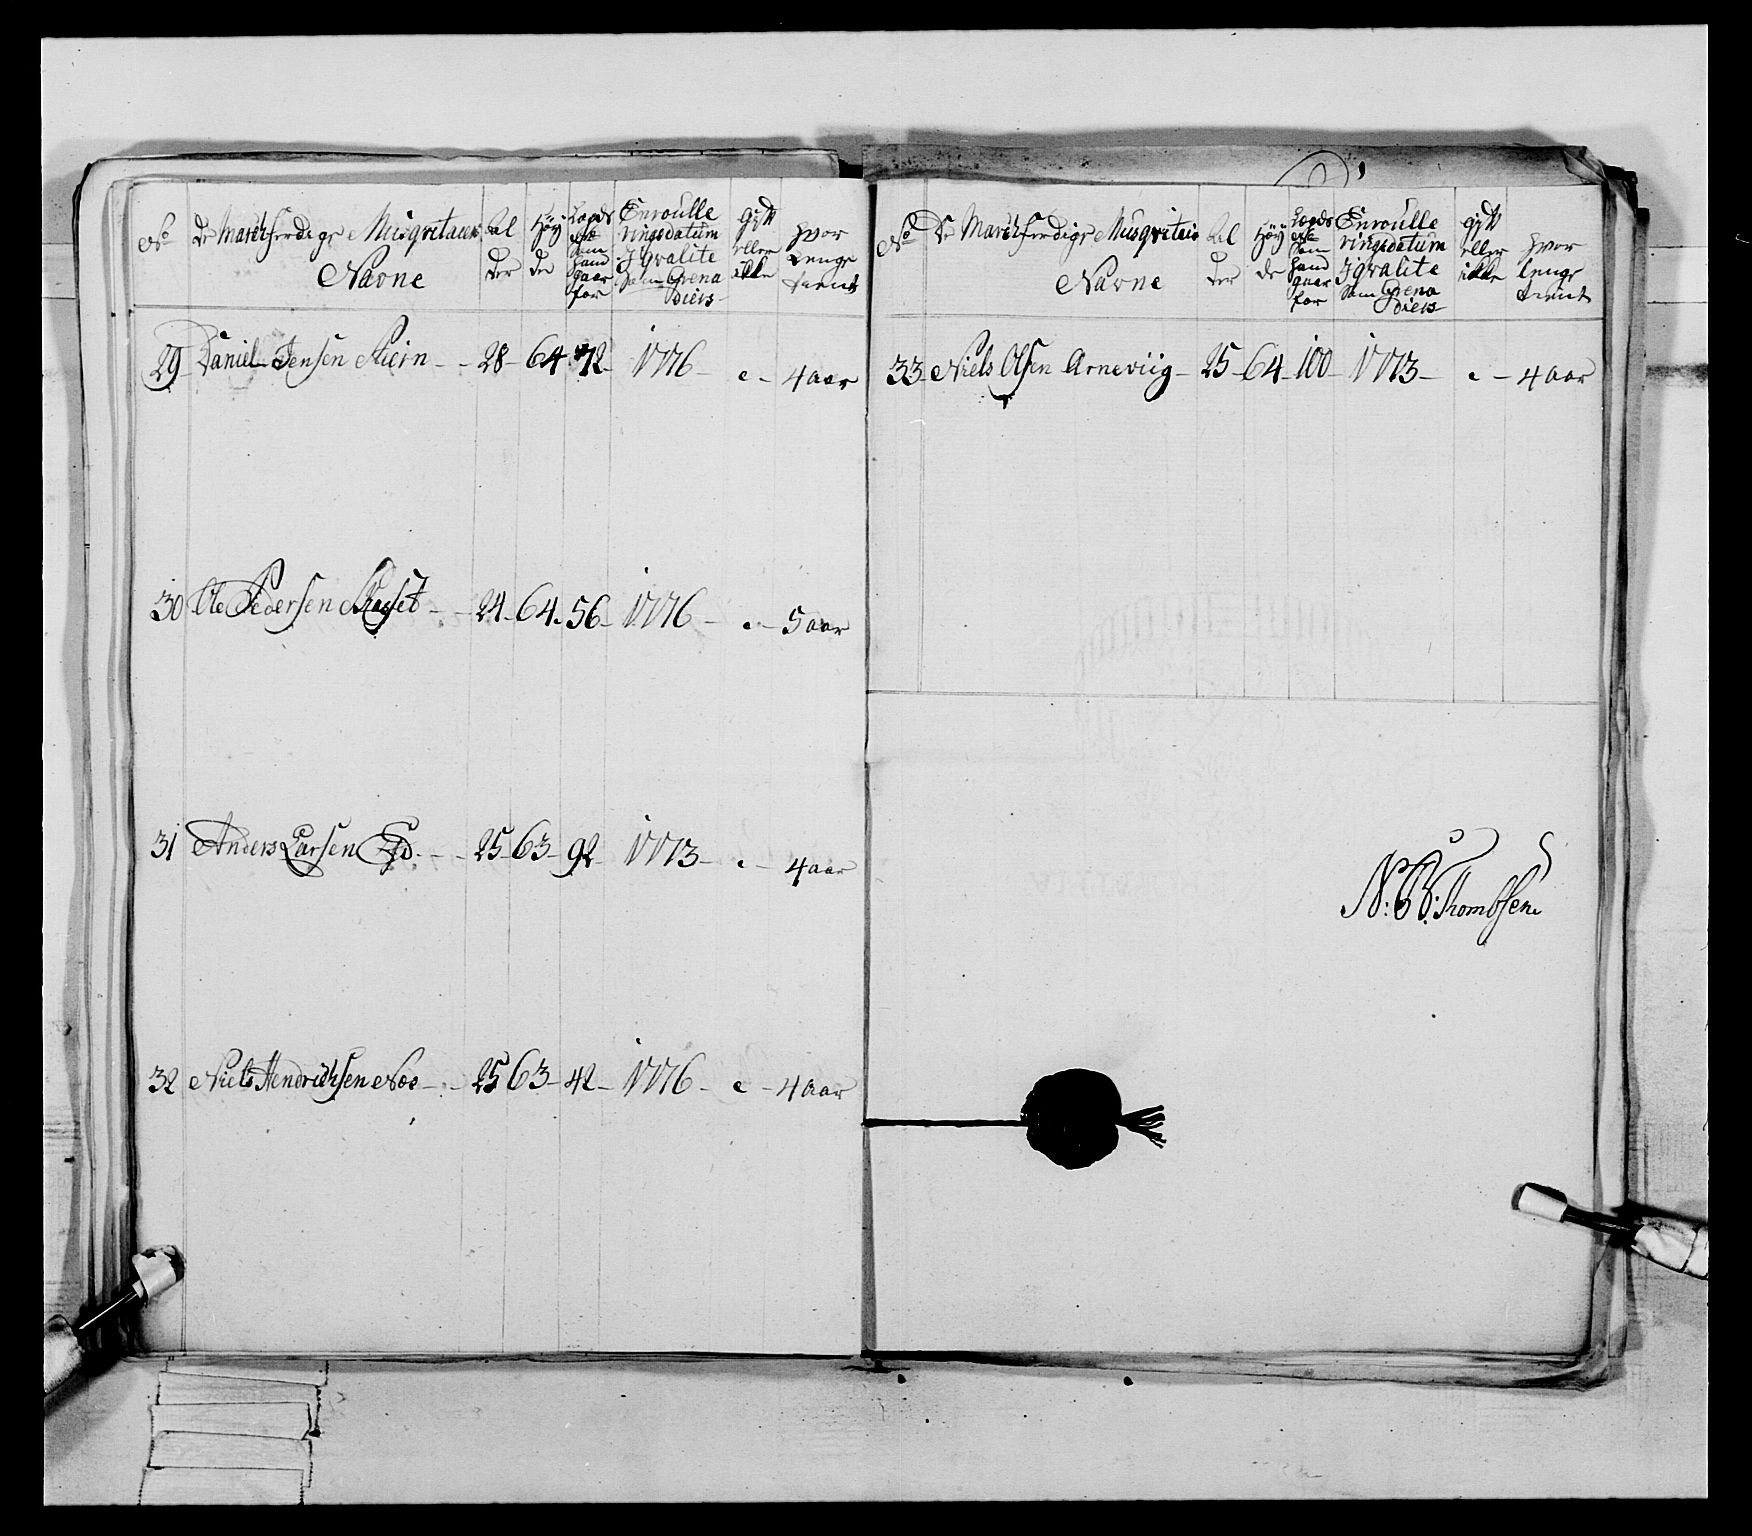 No
De Marchferdige Musqvitairs
Navne
Al
der
Høy
de
Lægds
No
som
hand
gaar
for
Enroulle
ringsdatum
i qvalite
som Grena
diers
Gift
eller
ikke
hvor
Lenge
tient
29 Daniel Jensen - - 28 - 64 - 72 - 1776 - e - 4 aar
30 Ole Pedersen - - 24 - 64 - 56 - 1776 - e - 5 aar
31 Anders Larsen - - 25 - 63 - 92 1773 - e - 4 aar
32 Niels Hendrichsen Noe - - 25 63 - 42 - 1776 - e - 4 aar
No
De Marchferdige Musqvitairs
Navne
Al
der
Høy
de
Lægds
No
som
hand
gaar
for
Enroulle
ringsdatum
i qvalite
som Grena
diers
gift
eller
ikke
hvor
lenge
tient
33 Niels Olsen Arneviig - 25 - 64 - 100 - 1773 - e - 4 aar
N: B: Thombsen